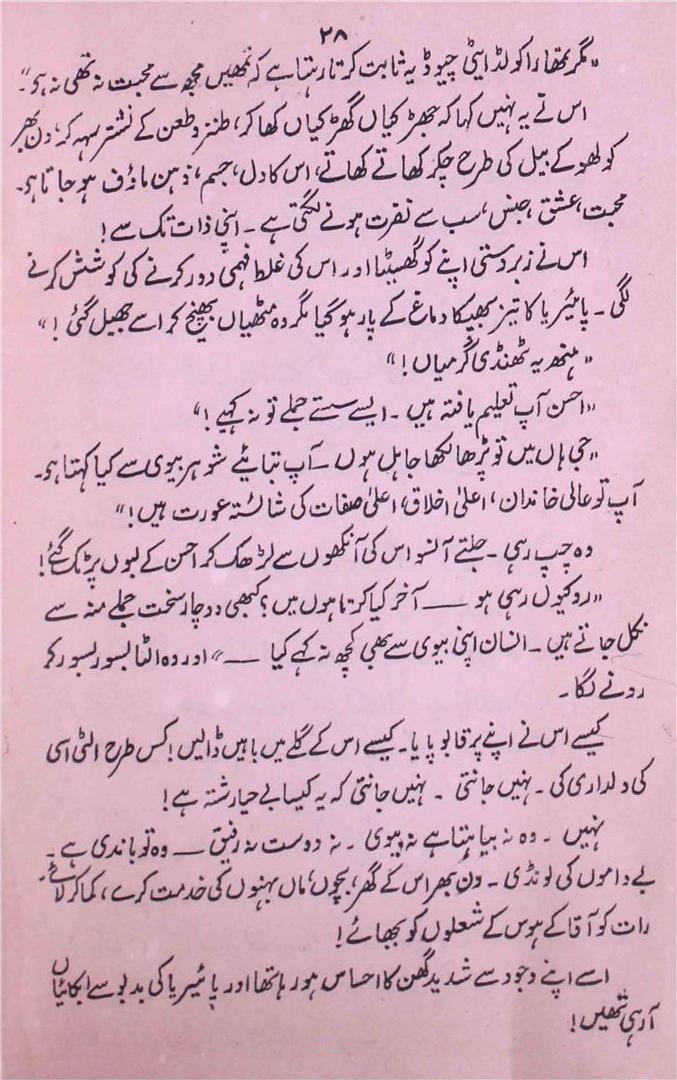 ۲۸
"مگر تمھارا کولڈ ایٹی چیوڈ یہ ثابت کرتا رہتا ہے کہ تمھیں مجھ سے محبت نہ تھی نہ ہو۔"
اس نے یہ نہیں کہا کہ جھڑکیاں گھڑکیاں کھا کر، طنز و طعن کے نشتر سہہ کر، دن بھر
کولھو کے بیل کی طرح چکر کھاتے کھاتے، اس کا دل، جسم، ذہن ماؤف ہو جاتا ہو۔
محبت، عشق، جنس، سب سے نفرت ہونے لگتی ہے۔ اپنی ذات تک سے!
اس نے زبردستی اپنے کو گھسیٹا اور اس کی غلط فہمی دور کرنے کی کوشش کرنے
لگی۔ پائیریا کا تیز بھپکا دماغ کے پار ہو گیا مگر وہ مٹھیاں بھینچ کر اسے جھیل گئی!"
"ہنھ یہ ٹھنڈی گرمیاں!"
"احسن آپ تعلیم یافتہ ہیں۔ ایسے سستے جملے تو نہ کہیے!"
"جی ہاں میں تو پڑھا لکھا جاہل ہوں۔ آپ بتائیے شوہر بیوی سے کیا کہتا ہو۔
آپ تو عالی خاندان، اعلیٰ اخلاق، اعلیٰ صفات کی شائستہ عورت ہیں!"
وہ چپ رہی۔ جلتے آنسو اس کی آنکھوں سے لڑھک کر احسن کے لبوں پر ٹپک گئے!
"رو کیوں رہی ہو ــــ آخر کیا کرتا ہوں میں؟ کبھی دو چار سخت جملے منہ سے
نکل جاتے ہیں۔ انسان اپنی بیوی سے بھی کچھ نہ کہے کیا ــــ" اور وہ الٹا بسور بسور کر
رونے لگا۔
کیسے اس نے اپنے پر قابو پایا۔ کیسے اس کے گلے میں باہیں ڈالیں! کس طرح الٹی اسی
کی دلداری کی۔ نہیں جانتی۔ نہیں جانتی کہ یہ کیسا بے حیا رشتہ ہے!
نہیں۔ وہ نہ بیاہتا ہے نہ بیوی۔ نہ دوست نہ رفیق ــــ وہ تو باندی ہے۔
بے داموں کی لونڈی۔ دن بھر اس کے گھر، بچوں، ماں بہنوں کی خدمت کرے، کما کر لائے۔
رات کو آقا کے ہوس کے شعلوں کو بجھائے!
اسے اپنے وجود سے شدید گھن کا احساس ہو رہا تھا اور پائیریا کی بدبو سے ابکائیاں
آ رہی تھیں!